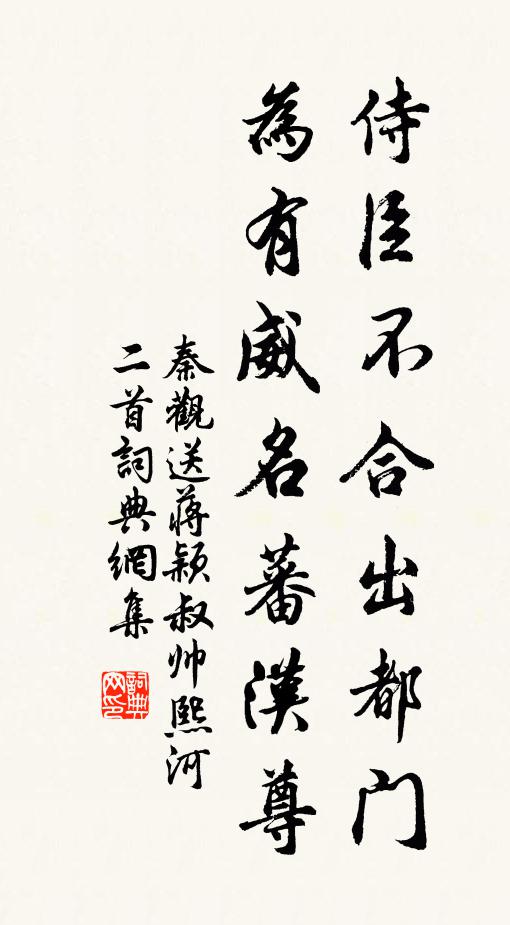 侍臣不合出都門
為有威名蕃漢尊
秦觀送蔣颖叔帅熙河
二首詞典網集
詞典
网印